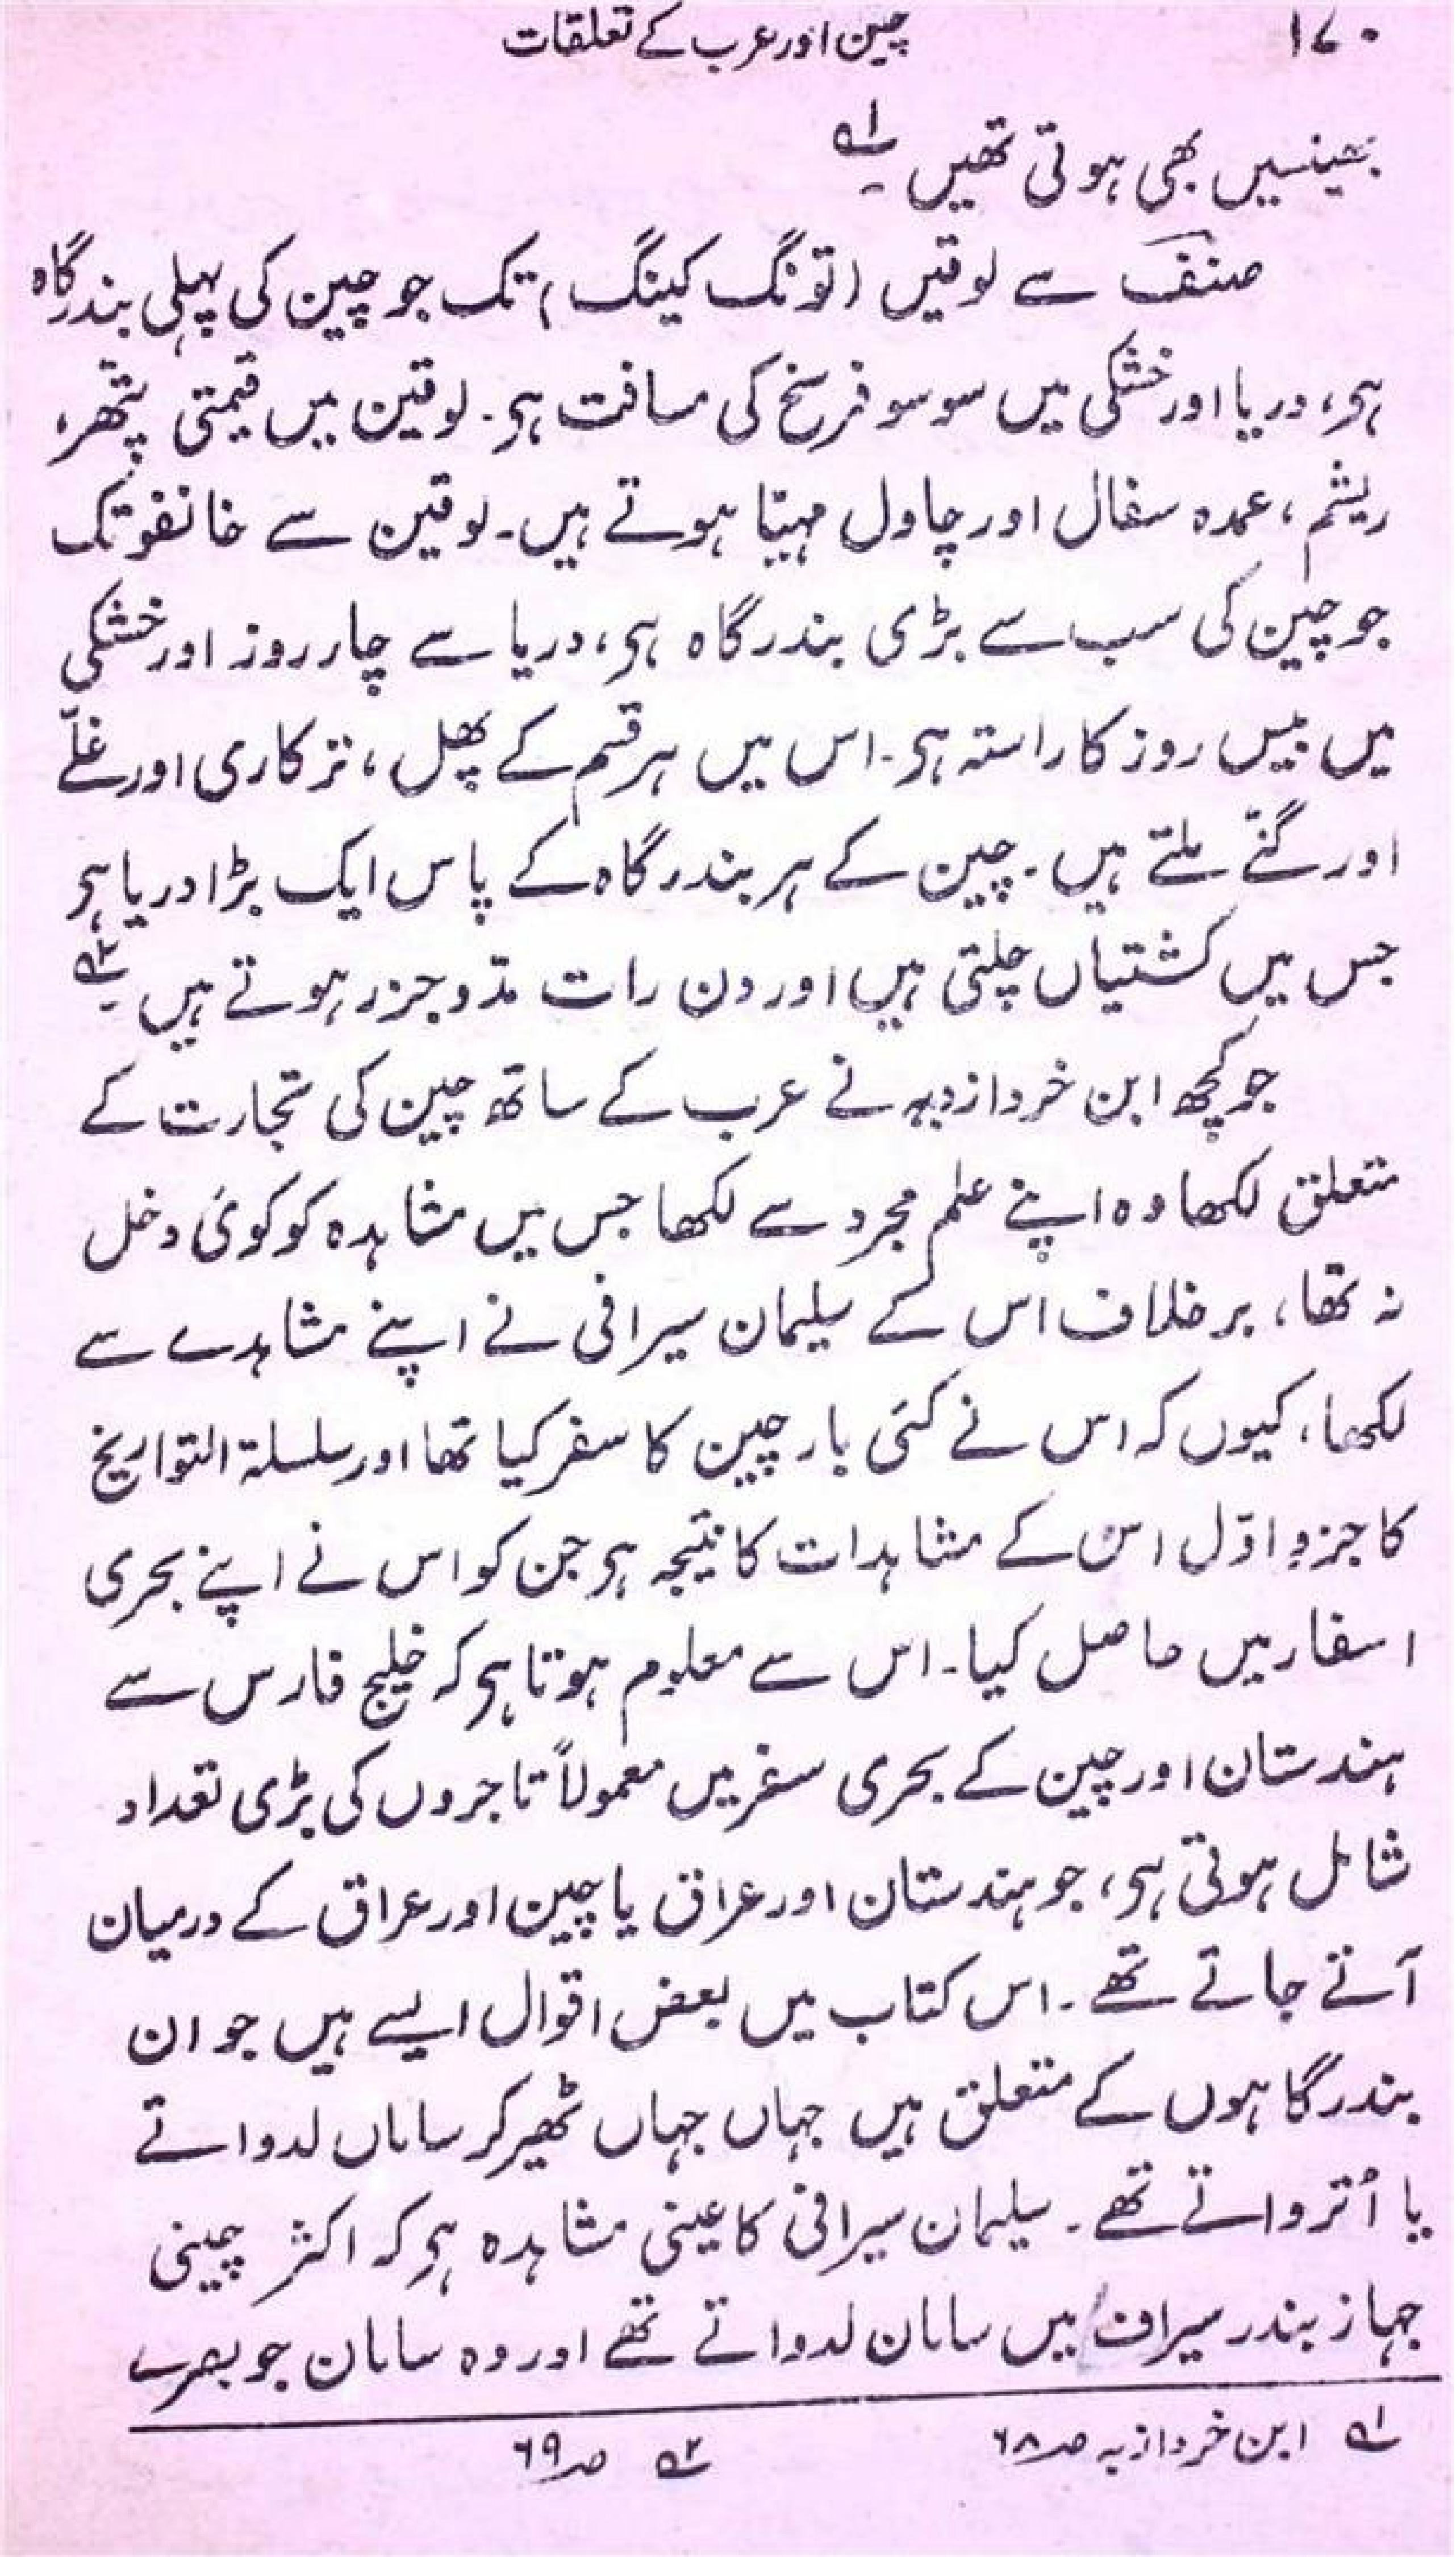 ۱۷۰ چین اور عرب کے تعلقات
بھینسیں بھی ہوتی تھیں ؎۱
صنف سے لوقیں (تونگ کینگ) تک جو چین کی پہلی بندرگاہ
ہی، دریا اور خشکی میں سو سو فرسخ کی مسافت ہی۔ لوقین میں قیمتی پتھر،
ریشم، عمدہ سفال اور چاول مہیّا ہوتے ہیں۔ لوقین سے خانفو تک
جو چین کی سب سے بڑی بندرگاہ ہی، دریا سے چار روز اور خشکی
میں بیس روز کا راستہ ہی۔ اس میں ہر قسم کے پھل، ترکاری اور غلّے
اور گنّے ملتے ہیں۔ چین کے ہر بندرگاہ کے پاس ایک بڑا دریا ہی
جس میں کشتیاں چلتی ہیں اور دن رات مدّ و جزر ہوتے ہیں ؎۲
جو کچھ ابن خردازبہ نے عرب کے ساتھ چین کی تجارت کے
متعلق لکھا وہ اپنے علم مجرد سے لکھا جس میں مشاہدہ کو کوئی دخل
نہ تھا، برخلاف اس کے سلیمان سیرافی نے اپنے مشاہدے سے
لکھا، کیوں کہ اس نے کئی بار چین کا سفر کیا تھا اور سلسلۃ التواریخ
کا جزوِ اوّل اس کے مشاہدات کا نتیجہ ہی جن کو اس نے اپنے بحری
اسفار میں حاصل کیا۔ اس سے معلوم ہوتا ہی کہ خلیج فارس سے
ہندستان اور چین کے بحری سفر میں معمولاً تاجروں کی بڑی تعداد
شامل ہوتی ہی، جو ہندستان اور عراق یا چین اور عراق کے درمیان
آتے جاتے تھے۔ اس کتاب میں بعض اقوال ایسے ہیں جو ان
بندرگاہوں کے متعلق ہیں جہاں جہاں ٹھیر کر سامان لدواتے
یا اُترواتے تھے۔ سلیمان سیرافی کا عینی مشاہدہ ہی کہ اکثر چینی
جہاز بندر سیراف میں سامان لدواتے تھے اور وہ سامان جو بصرے
؎۱ ابن خردازبہ صـ ۶۸ ؎۲ صـ ۶۹